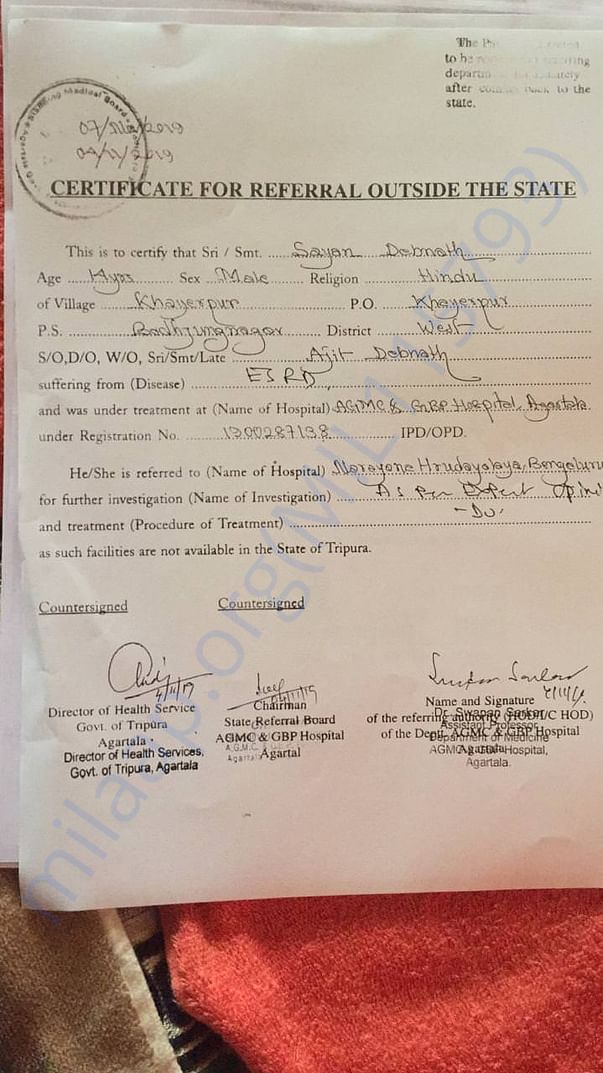 The
to be
department
after back to the
state.
Standing Medical Board
CERTIFICATE FOR REFERRAL OUTSIDE THE STATE
This is to certify that Sri / Smt. Sayan Debnath
Age Sex Male Religion Hindu
of Village Khayerpur P.O. Khayerpur
P.S. District West
S/O,D/O, W/O, Sri/Smt/Late Ajit Debnath
suffering from (Disease) ESRD
and was under treatment at (Name of Hospital) AGMC & GBP Hospital, Agartala
under Registration No. IPD/OPD.
He/She is referred to (Name of Hospital) Narayana Hrudayalaya, Bengaluru
for further investigation (Name of Investigation) As per Expert Opini
and treatment (Procedure of Treatment) -Do-
as such facilities are not available in the State of Tripura.
Countersigned Countersigned
4/11/19
Director of Health Service
Govt. of Tripura
Agartala
Director of Health Services,
Govt. of Tripura, Agartala
Chairman
State Referral Board
AGMC & GBP Hospital
Agartal
Name and Signature
of the referring authority (HOD/I/C HOD)
of the Deptt. AGMC & GBP Hospital
Agartala
Dr. Swapan Sarkar
Assistant Professor
Department of Medicine
AGMC & GBP Hospital,
Agartala.
milaap.org(MIL119793)